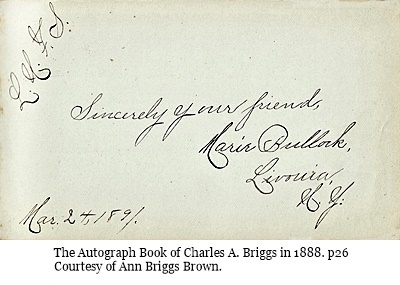 L. H. F. S.
Sincerely your friend,
Marie Bullock,
Livonia,
N. Y.
Mar. 24 1891.
The Autograph Book of Charles A. Briggs in 1888. p26
Courtesy of Ann Briggs Brown.